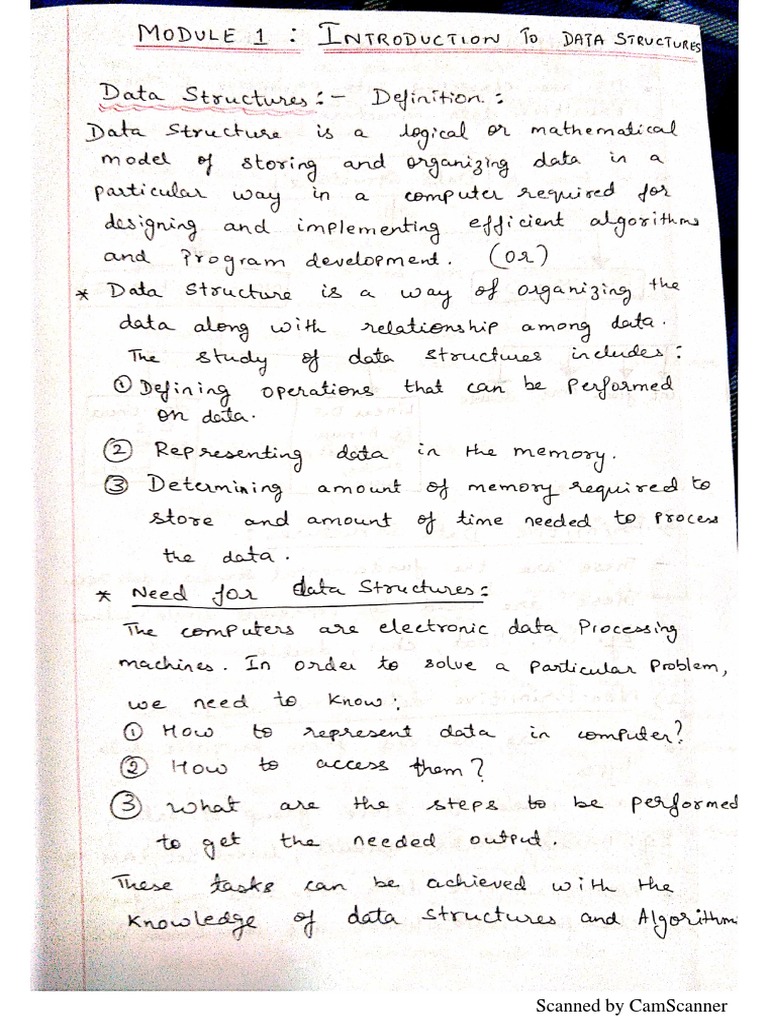 MODULE 1 : INTRODUCTION TO DATA STRUCTURES
Data Structures :- Definition :
Data Structure is a logical or mathematical
model of storing and organizing data in a
particular way in a computer required for
designing and implementing efficient algorithms
and Program development. (OR)
* Data Structure is a way of organizing the
data along with relationship among data.
The study of data structures includes :
① Defining operations that can be performed
on data.
② Representing data in the memory.
③ Determining amount of memory required to
store and amount of time needed to process
the data.
* Need for data Structures :
The computers are electronic data Processing
machines. In order to solve a particular problem,
we need to know :
① How to represent data in computer?
② How to access them?
③ What are the steps to be performed
to get the needed output.
These tasks can be achieved with the
knowledge of data structures and Algorithm
Scanned by CamScanner